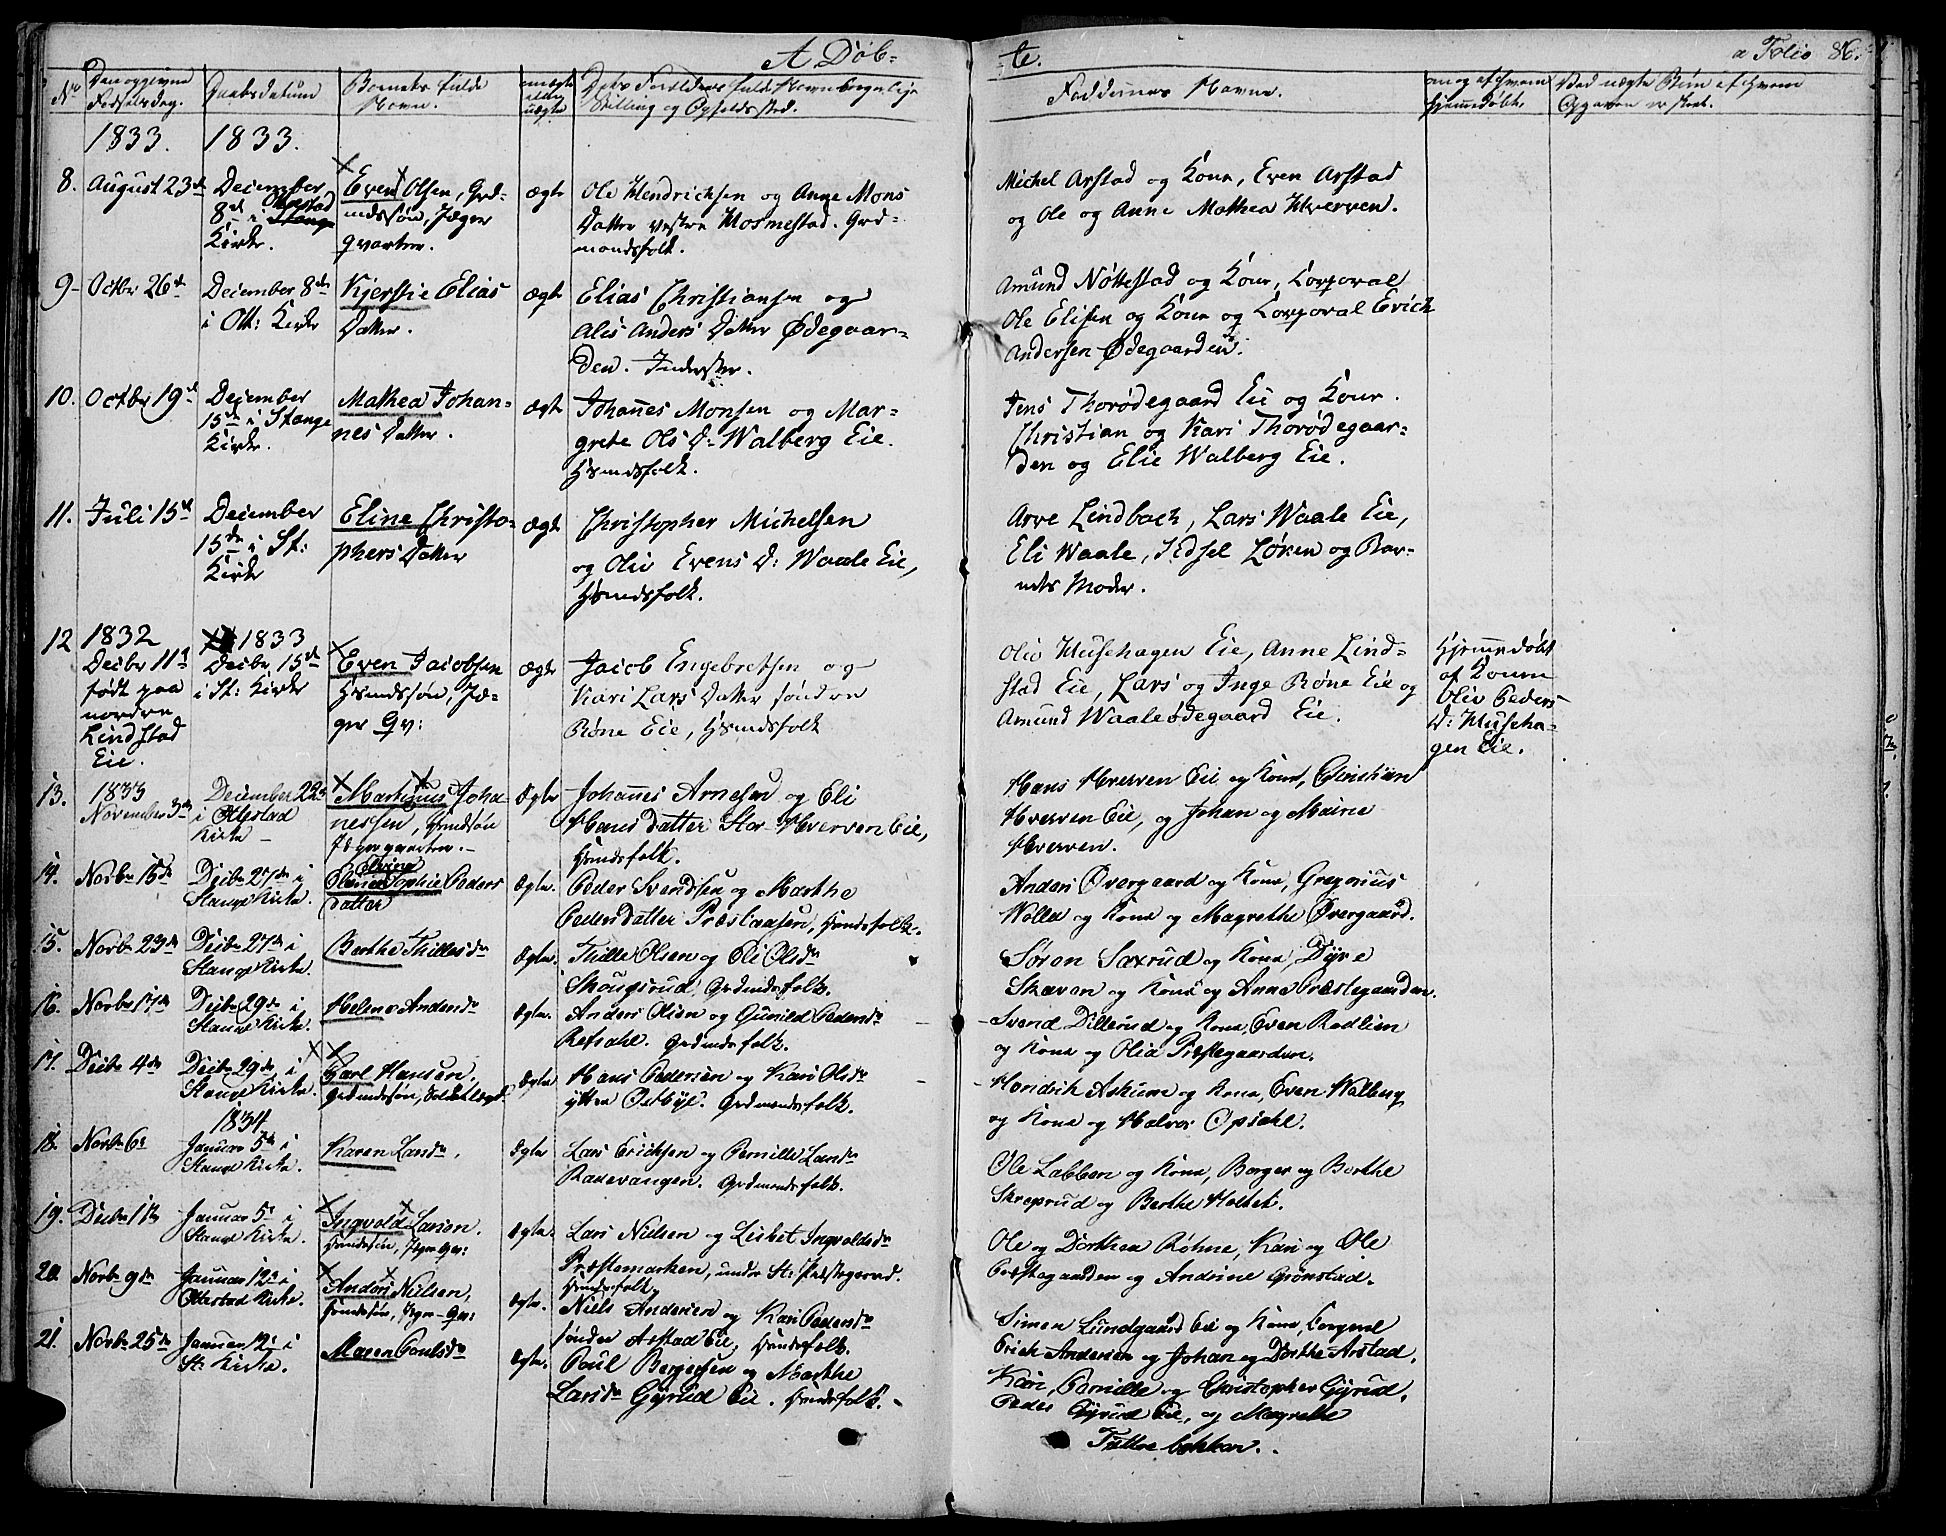 A Døb-
te.
a Folio 86.
No
Den opgivne
Fødselsdag.
Daabsdatum
Barnets fulde
Navn.
om ægte
eller
uægte
Dets Forældres fulde Navn borgerlige
Stilling og Opholdssted.
Faddernes Navne.
om og af hvem
hjemmedøbt.
Ved uægte Børn af hvem
Opgaven er skeet.
1833.
1833.
8.
August 23de
December
8de i Ottestad
Stange
Kirke.
Even Olsen, Grd-
mdssøn, Jæger
qvarteer.
Ægte
Ole Hendrichsen og Anne Mons
Datter vestre Hosmestad. Grd-
mandsfolk.
Michel Arstad og Kone, Even Arstad
og Ole og Anne Mathea Hverven.
9-
Octbr 26de
December 8de
i Ott: Kirke
Kjerstie Elias
Datter.
Ægte
Elias Christiansen og
Alis Anders Datter Ødegaar-
den. Inderster.
Amund Nøttestad og Kone, Corporal
Ole Elisen og Kone og Corporal Erich
Andersen Ødegaarden.
10.
Octbr 19de
December
15de i Stange
Kirke.
Mathea Johan-
nes Datter.
Ægte
Johannes Monsen og Mar-
grete Ols D: Walberg Eie.
Hsmdsfolk.
Jens Thorødegaard Eie og Kone.
Christian og Kari Thorødegaar-
den og Elie Walberg Eie.
11.
Juli 15de
December
15de i St:
Kirke
Eline Christo-
phers Datter
Ægte
Christopher Michelsen
og Oliv Evens D: Waale Eie,
Hsmdsfolk.
Arve Lindbach, Lars Waale Eie,
Eli Waale, Sidsel Løken og Bar-
nets Moder.
12
1832
Decbr 11te
født paa
nordre
Lindstad
Eie.
1833
Decbr. 15de
i St: Kirke
Even Jacobsen
Hsmdssøn, Jæ-
ger Qv:
Ægte
Jacob Engebretsen og
Kari Lars Datter søndre
Røne Eie, Hsmdsfolk
Oliv Musehagen Eie, Anne Lind-
stad Eie, Lars og Inge Røne Eie og
Amund Waaleødegaard Eie.
Hjemmedøbt
af Konen
Oliv Peders
D: Museha-
gen Eie.
13.
1833
November 3de
December 22de
i Ottestad
Kirke
Martinus Joha
nessen, Hsmdssøn
Jægerqvarteer.
Ægte
Johannes Arnesen og Eli
Hansdatter Stor-Hverven Eie,
Hsmdsfolk.
Hans Hverven Eie og Kone, Christian
Hverven Eie, og Johan og Marie
Hverven.
14.
Novbr 15de
Decbr 27de i
Stange Kirke.
Sophie Peders
datter
Ægte.
Peder Svendsen og Marthe
Pedersdatter Præstaasen, Hsmdsfolk.
Anders Øvergaard og Kone, Gregorius
Wolla og Kone og Magrethe Øvergaard.
15.
Novbr 23de
Decbr 27de i
Stange Kirke.
Berthe Thillesdr
Ægte.
Thille Olsen og Eli Olsdr
Skougsrud, Grdmdsfolk.
Søren Saxrud og Kone, Dyre
Skaven og Kone og Anne Præstegaarden.
16.
Novbr 17de
Decbr 29de i
Stange Kirke.
Helene Andersdr
Ægte.
Anders Olsen og Gunild Pedersdr
Refsahl. Grdmdsfolk.
Svend Dillerud og Kone, Even Rødlien
og Kone og Olia Præstegaarden.
17.
Decbr 4de
Decbr 29de, i
Stange Kirke.
Carl Hansen,
Grdmdssøn, Soldatlægd.
Ægte.
Hans Pedersen og Kari Olsdr
ytre Ostbye. Grdmandsfolk.
Hendrik Askum og Kone, Even Walberg
og Kone og Halvor Opsahl.
18.
Novbr 6te
1834
Januar 5te i
Stange Kirke.
Karen Larsdr,
Ægte
Lars Erichsen og Pernille Larsdr
Ravevangen. Grdmandsfolk.
Ole Labben og Kone, Borger og Berthe
Skreprud og Berthe Holtet.
19.
Decbr 11te
Januar 5te i
Stange Kirke.
Ingvold Larsen.
Hsmdssøn, Jæger Qv:
Ægte.
Lars Nielsen og Lisbet Ingvoldsdr
Præstemarken, under St: Præstegaard.
Hsmdsfolk.
Ole og Dorthea Røhne, Kari og Ole
Præstegaarden og Andrine Grønstad.
20.
Novbr 9de
Januar 12te i
Ottestad Kirke.
Anders Nielsen,
Hsmdssøn, Jæger-Qv:
Ægte.
Niels Andersen og Kari Pedersdr
søndre Arstad Eie, Hsmdsfolk.
Simen Lundgaard Eie og Kone, Corporal
Erich Andersen og Johan og Dorthe Arstad.
21.
Novbr 25de
Januar 12te i
St: Kirke.
Maren Poulsdr
Ægte.
Poul Borgersen og Marthe
Larsdr Gyrud Eie. Hsmdsfolk.
Kari, Pernille og Christopher Gyrud,
Peder Gyrud Eie, og Magrethe
Tuttrebakken.